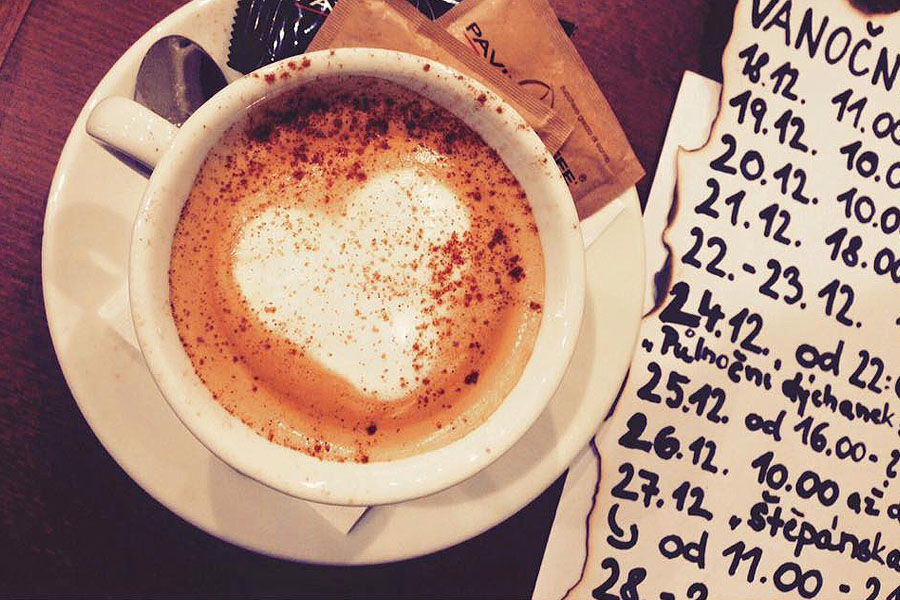 PAV.
VÁNOČN
18.12. 11.00
19.12. 10.0
20.12. 10.0
21.12. 18.00
22.-23.12.
24.12., od 22:
"Půlnoční dýchánek
25.12. od 16.00-?
26.12. 10.00 až
27.12 "Štěpánska
od 11.00 - 2
28.-2